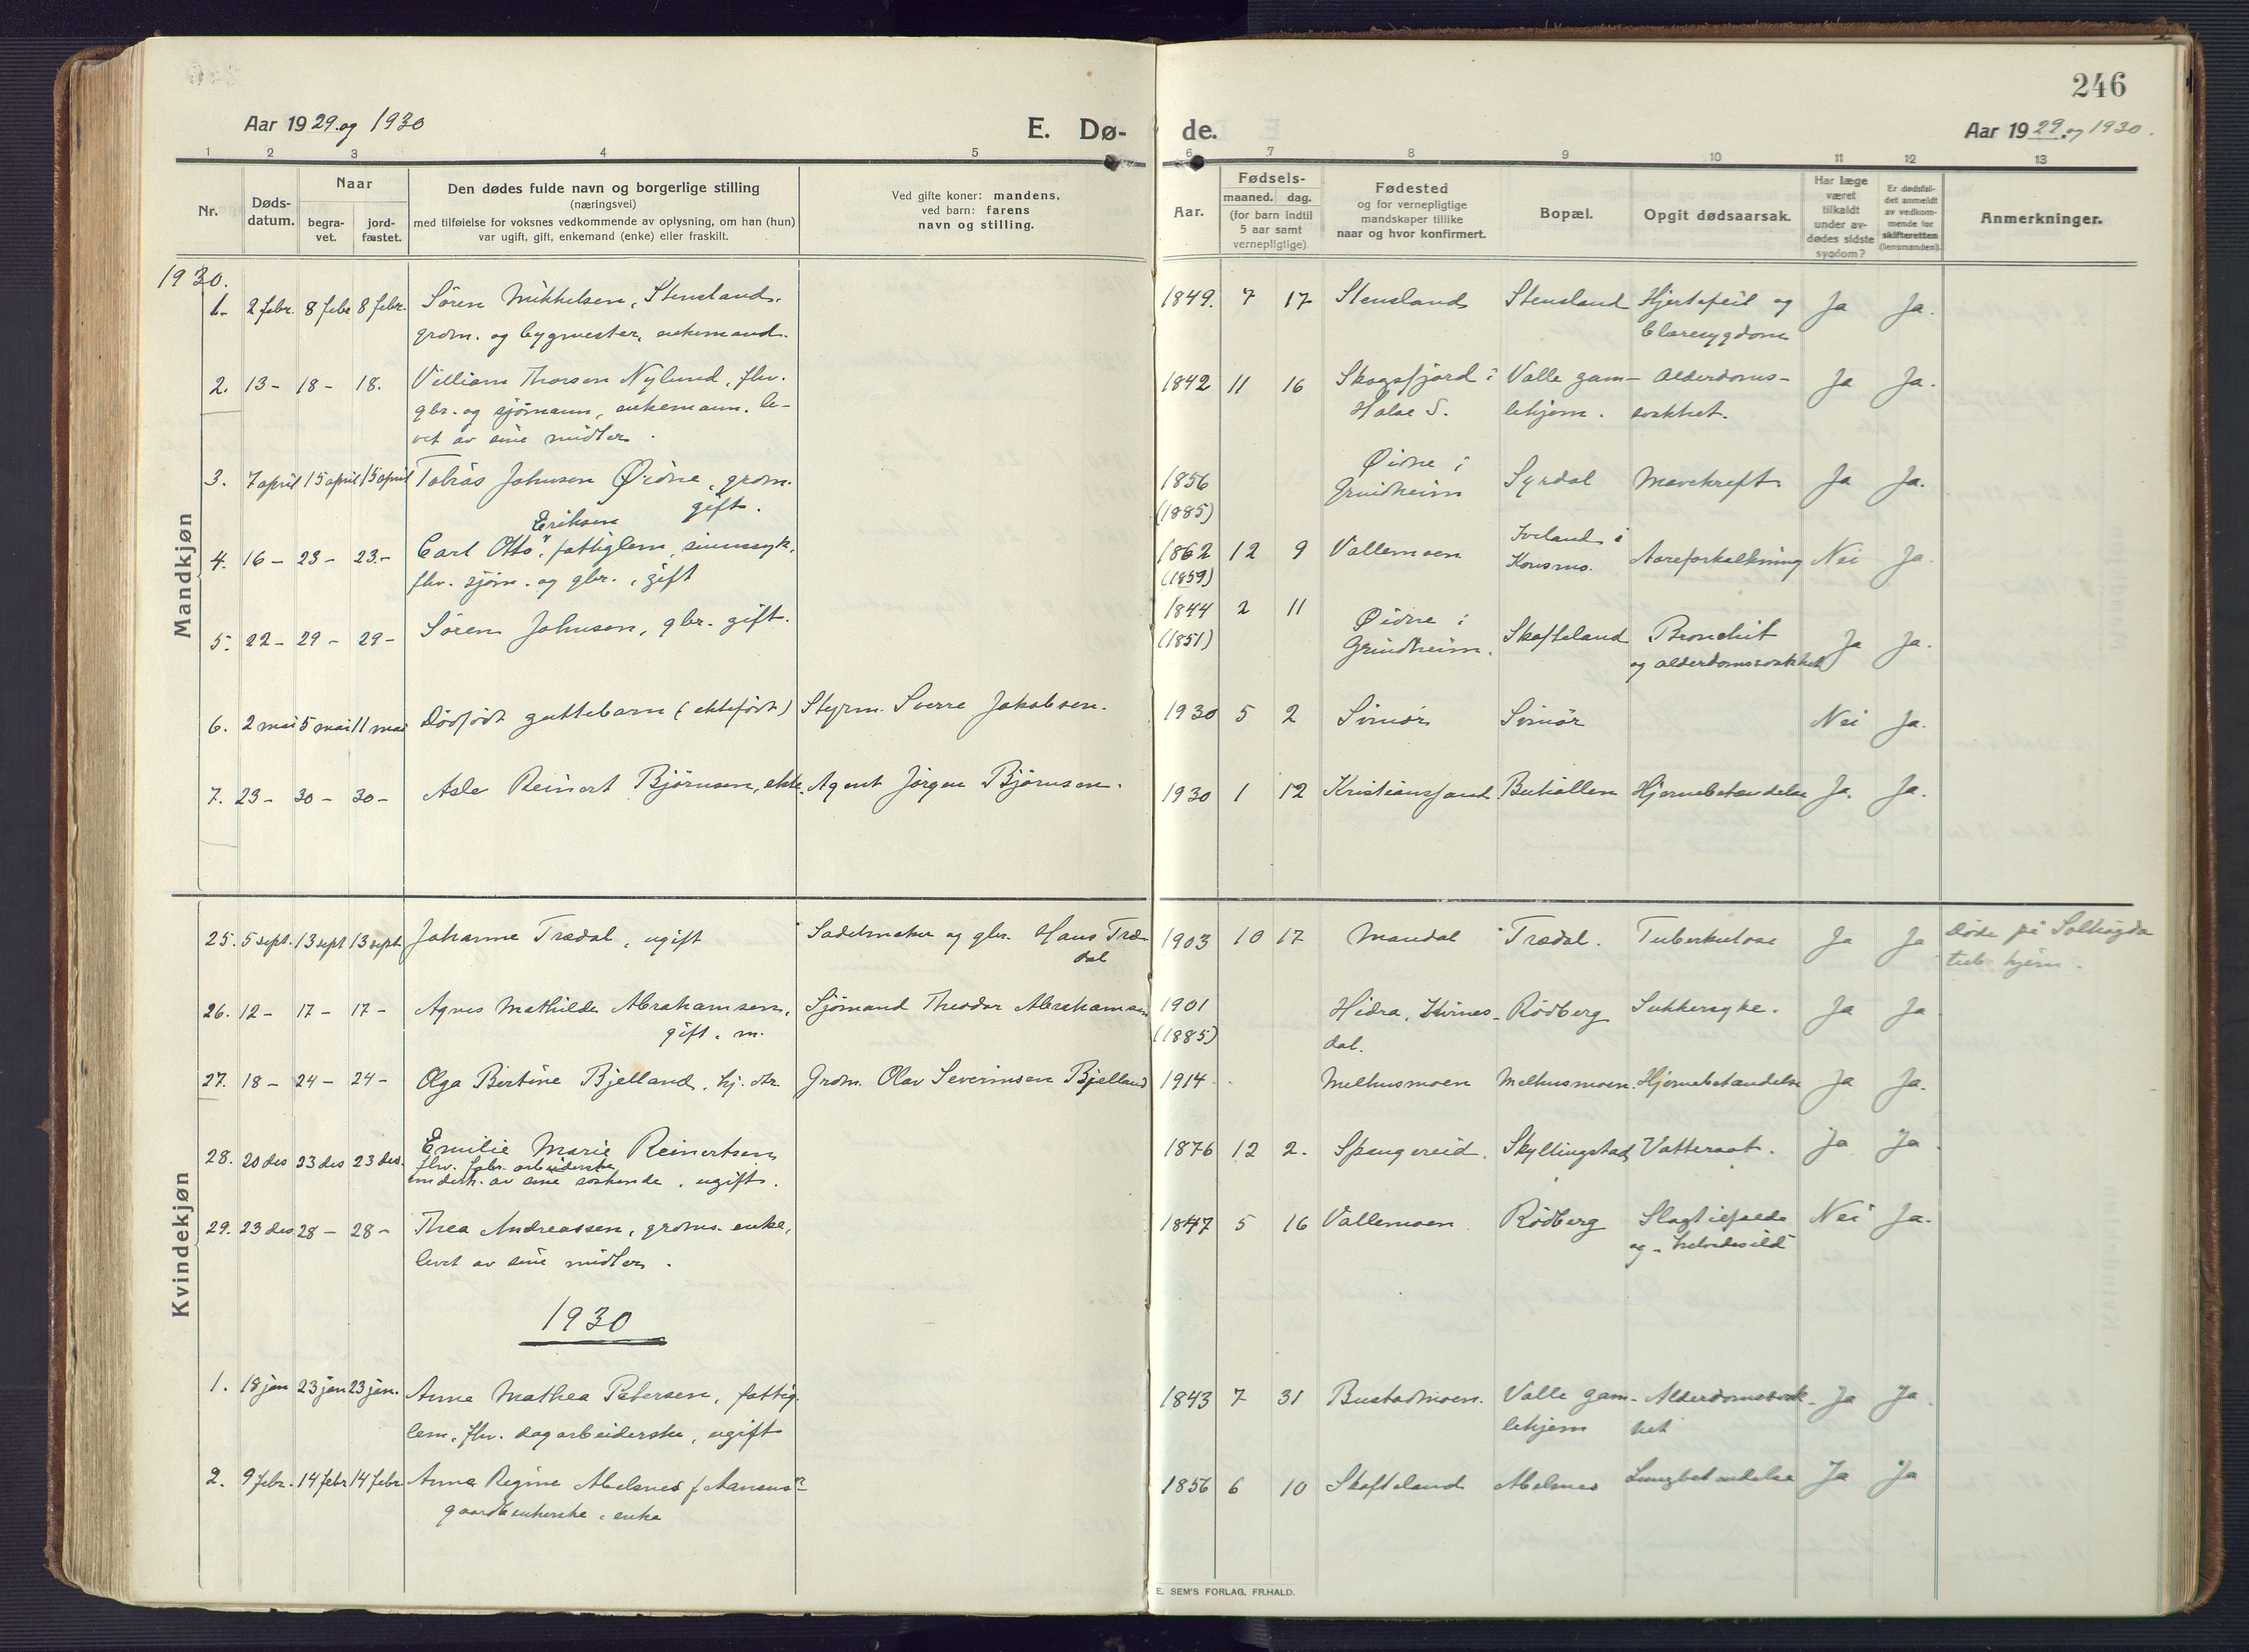 246
Aar 1929 og 1930
E. Dø-
de.
Aar 1929 og 1930.
1 2 3 4 5
6 7 8 9 10 11 12 13
Nr.
Døds-
datum.
Naar
begra-
vet.
jord-
fæstet.
Den dødes fulde navn og borgerlige stilling
(næringsvei)
med tilføielse for voksnes vedkommende av oplysning, om han (hun)
var ugift, gift, enkemand (enke) eller fraskilt.
Ved gifte koner: mandens,
ved barn: farens
navn og stilling.
Aar.
Fødsels-
maaned. dag.
(for barn indtil
5 aar samt
vernepligtige)
Fødested
og for vernepligtige
mandskaper tillike
naar og hvor konfirmert.
Bopæl.
Opgit dødsaarsak.
Har læge
været
tilkaldt
under av-
dødes sidste
sygdom?
Er dødsfal-
det anmeldt
av vedkom-
mende for
skifteretten
(lensmanden).
Anmerkninger.
Mandkjøn
1930.
1. 2 febr. 8 febr 8 febr. Sören Mikkelsen, Stensland, 1849. 7 17 Stensland Stensland Hjertefeil og Ja Ja.
grdm. og bygmester, enkemand. blæresygdom
2. 13- 18- 18. Villiam Thorsen Nylund, fhv. 1842 11 16 Skogsfjord i Valle gam- Alderdoms- Ja Ja.
gbr. og sjömann, enkemann. le- Halse S. lehjem. svakhet.
vet av sine midler.
3. 7 april 15 april 15 april Tobias Johnsen Øidne, grdm. 1856 Øidne i Syrdal Mavekreft. Ja Ja.
gift. (1885) Grindheim
Eriksen
4. 16- 23- 23.- Carl Otto", fattiglem, sinnssyk, 1862 12 9 Vallemoen Iveland i Aareforkalkning Nei Ja.
fhv. sjöm. og gbr., gift (1859) Konsmo.
5. 22- 29- 29- Sören Johnsen, gbr. gift. 1844 2 11 Øidne i Skofteland Bronchit Ja Ja.
(1851) Grindheim. og alderdomssvakhet
6. 2 mai 5 mai 11 mai Dödfödt guttebarn (ektefödt) Styrm. Sverre Jakobsen. 1930 5 2 Svinör Svinör Nei Ja.
7. 23- 30- 30- Asle Reinert Björnsen, ekte. Agent Jörgen Björnsen. 1930 1 12 Kristianssand Hjernebetændelse Ja. Ja.
Kvindekjøn
25. 5 sept. 13 sept 13 sept. Johanne Trædal, ugift Sadelmaker og gbr. Hans Træ- 1903 10 17 Mandal Trædal. Tuberkulose Ja Ja Döde på Solhögda
dal tub. hjem.
26. 12- 17- 17- Agnes Mathilde Abrahamsen, Sjömand Theodor Abrahamsen 1901 Hidra, Kvines- Rödberg Sukkersyke. Ja Ja
gift. m. (1885) dal.
27. 18- 24- 24- Olga Bertine Bjelland, hj. dtr. Grdm. Olav Severinsen Bjelland 1914 Melhusmoen Melhusmoen. Hjernebetændelse Ja Ja.
28. 20 des 23 des 23 des. Emilie Marie Reinertsen 1876 12 2. Spangereid. Skyllingstad Vattersot. Ja Ja.
fhv. fabr. arbeiderske
underh. av sine söskende. ugift.
29. 23 des 28- 28- Thea Andreassen, grdms. enke, 1847 5 16 Vallemoen Rödberg Slagtilfælde Nei Ja.
levet av sine midler. og helvedesild
1930
1. 18 jan 23 jan 23 jan. Anna Mathea Petersen, fattig- 1843 7 31 Bustadmoen. Valle gam- Alderdomssvak- Ja Ja
lem, fhv. dagarbeiderske, ugift lehjem het
2. 9 febr. 14 febr 14 febr Anna Regine Abelsnes f. 1856 6 10 Skofteland Abelnes Lungebetændelse Ja Ja
gaardbrukerske, enke
E. SEM'S FORLAG, FR.HALD.